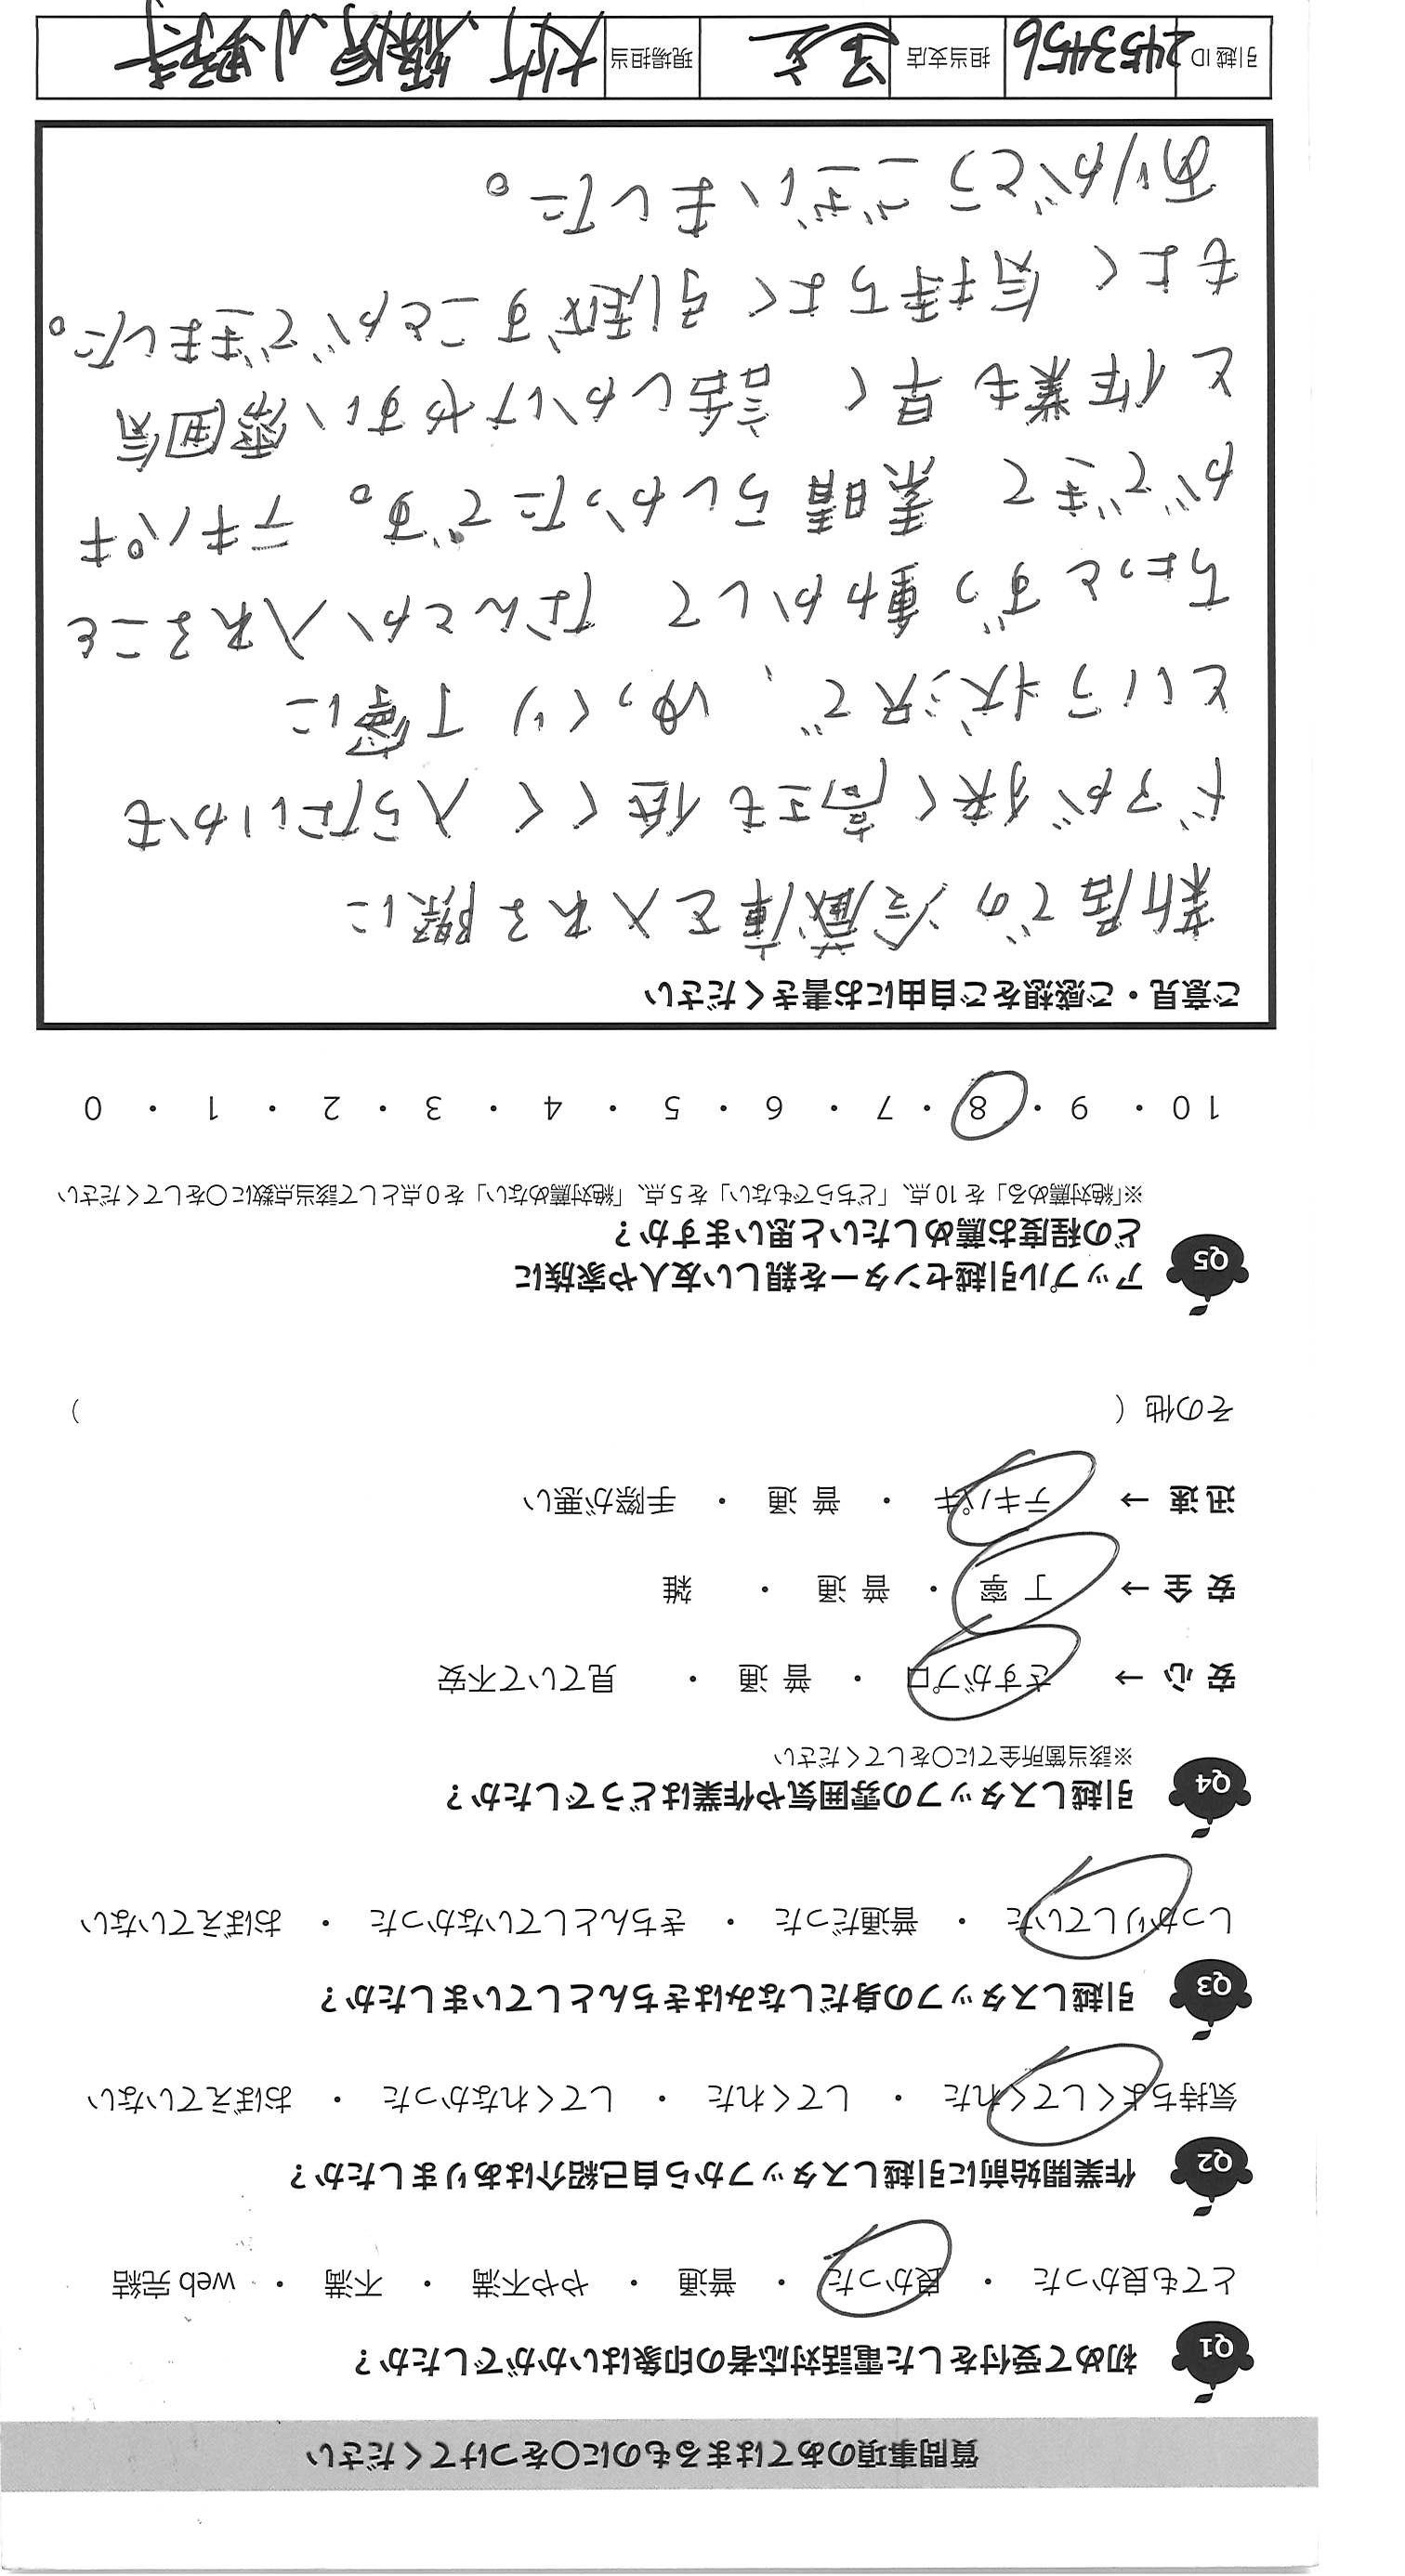 質問事項のあてはまるものに○をつけてください
Q1 初めて受付をした電話対応者の印象はいかがでしたか？
とても良かった ・ 良かった ・ 普通 ・ やや不満 ・ 不満 ・ web 完結
Q2 作業開始前に引越しスタッフから自己紹介はありましたか？
気持ちよくしてくれた ・ してくれた ・ してくれなかった ・ おぼえていない
Q3 引越しスタッフの身だしなみはきちんとしていましたか？
しっかりしていた ・ 普通だった ・ きちんとしていなかった ・ おぼえていない
Q4 引越しスタッフの雰囲気や作業はどうでしたか？
※該当箇所全てに○をしてください
安 心 → さすがプロ ・ 普 通 ・ 見ていて不安
安 全 → 丁 寧 ・ 普 通 ・ 雑
迅 速 → テキパキ ・ 普 通 ・ 手際が悪い
その他（ ）
Q5 アップル引越センターを親しい友人や家族に
どの程度お薦めしたいと思いますか？
※「絶対薦める」を 10 点、「どちらでもない」を 5 点、「絶対薦めない」を 0 点として該当点数に○をしてください
10 ・ 9 ・ 8 ・ 7 ・ 6 ・ 5 ・ 4 ・ 3 ・ 2 ・ 1 ・ 0
ご意見・ご感想をご自由にお書きください
新居での冷蔵庫を入れる際に
ドアが狭く高さも低くく入らないかも
という状況で、ゆっくり丁寧に
ちょっとずつ動かして なんとか入れること
ができて 素晴らしかったです。 テキパキ
と作業も早く 話しかけやすい雰囲気
もよく 気持ちよく引越すことができました。
ありがとうございました。
引越 ID 2453456 担当支店 現場担当 大竹